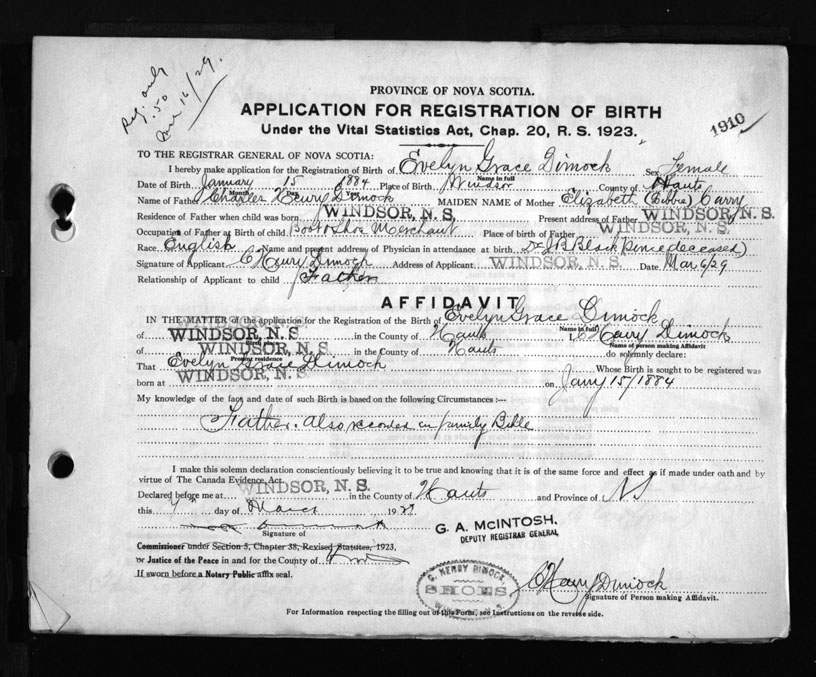 Reg. only
.50
Mar 16/29.
PROVINCE OF NOVA SCOTIA.
APPLICATION FOR REGISTRATION OF BIRTH
Under the Vital Statistics Act, Chap. 20, R. S. 1923.
1910
TO THE REGISTRAR GENERAL OF NOVA SCOTIA:
I hereby make application for the Registration of Birth of Evelyn Grace Dimock Sex Female
Name in full
Date of Birth January 15 1884 Place of Birth Windsor County of Hants
Month Day Year
Name of Father Charles Henry Dimock MAIDEN NAME of Mother Elizabeth (Libbie) Curry
Residence of Father when child was born WINDSOR, N. S. Present address of Father WINDSOR, N. S.
Occupation of Father at Birth of child Boot & Shoe Merchant Place of birth of Father WINDSOR, N. S.
Race English Name and present address of Physician in attendance at birth Dr J B Black (since deceased)
Signature of Applicant C Henry Dimock Address of Applicant WINDSOR, N. S. Date Mar 6/29
Relationship of Applicant to child Father
AFFIDAVIT
IN THE MATTER of the application for the Registration of the Birth of Evelyn Grace Dimock
Name in full
of WINDSOR, N. S in the County of Hants I, C Henry Dimock
Name of person making Affidavit
of WINDSOR, N. S in the County of Hants do solemnly declare:
Present residence
That Evelyn Grace Dimock Whose Birth is sought to be registered was
born at WINDSOR, N. S on Jany 15/1884
My knowledge of the fact and date of such Birth is based on the following Circumstances :—
Father. Also recorded in family Bible
I make this solemn declaration conscientiously believing it to be true and knowing that it is of the same force and effect as if made under oath and by
virtue of The Canada Evidence Act
Declared before me at WINDSOR, N. S. in the County of Hants and Province of NS
this day of March 1929
Signature of
G. A. McINTOSH,
DEPUTY REGISTRAR GENERAL
Commissioner under Section 5, Chapter 38, Revised Statutes, 1923,
or Justice of the Peace in and for the County of
If sworn before a Notary Public affix seal.
C. HENRY DIMOCK,
SHOES
C Henry Dimock
Signature of Person making Affidavit.
For Information respecting the filling out of this Form, see Instructions on the reverse side.